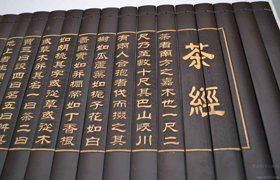 茶經
茶者南方之嘉木也一尺二
尺乃至數十尺其巴山峽川
有兩人合抱者伐而掇之其
樹如瓜蘆葉如梔子花如白
薔薇實如栟櫚蒂如丁香根
如胡桃其字或從草或從木
或草木并其名一曰茶二曰
曰蔎四曰茗五曰荈其